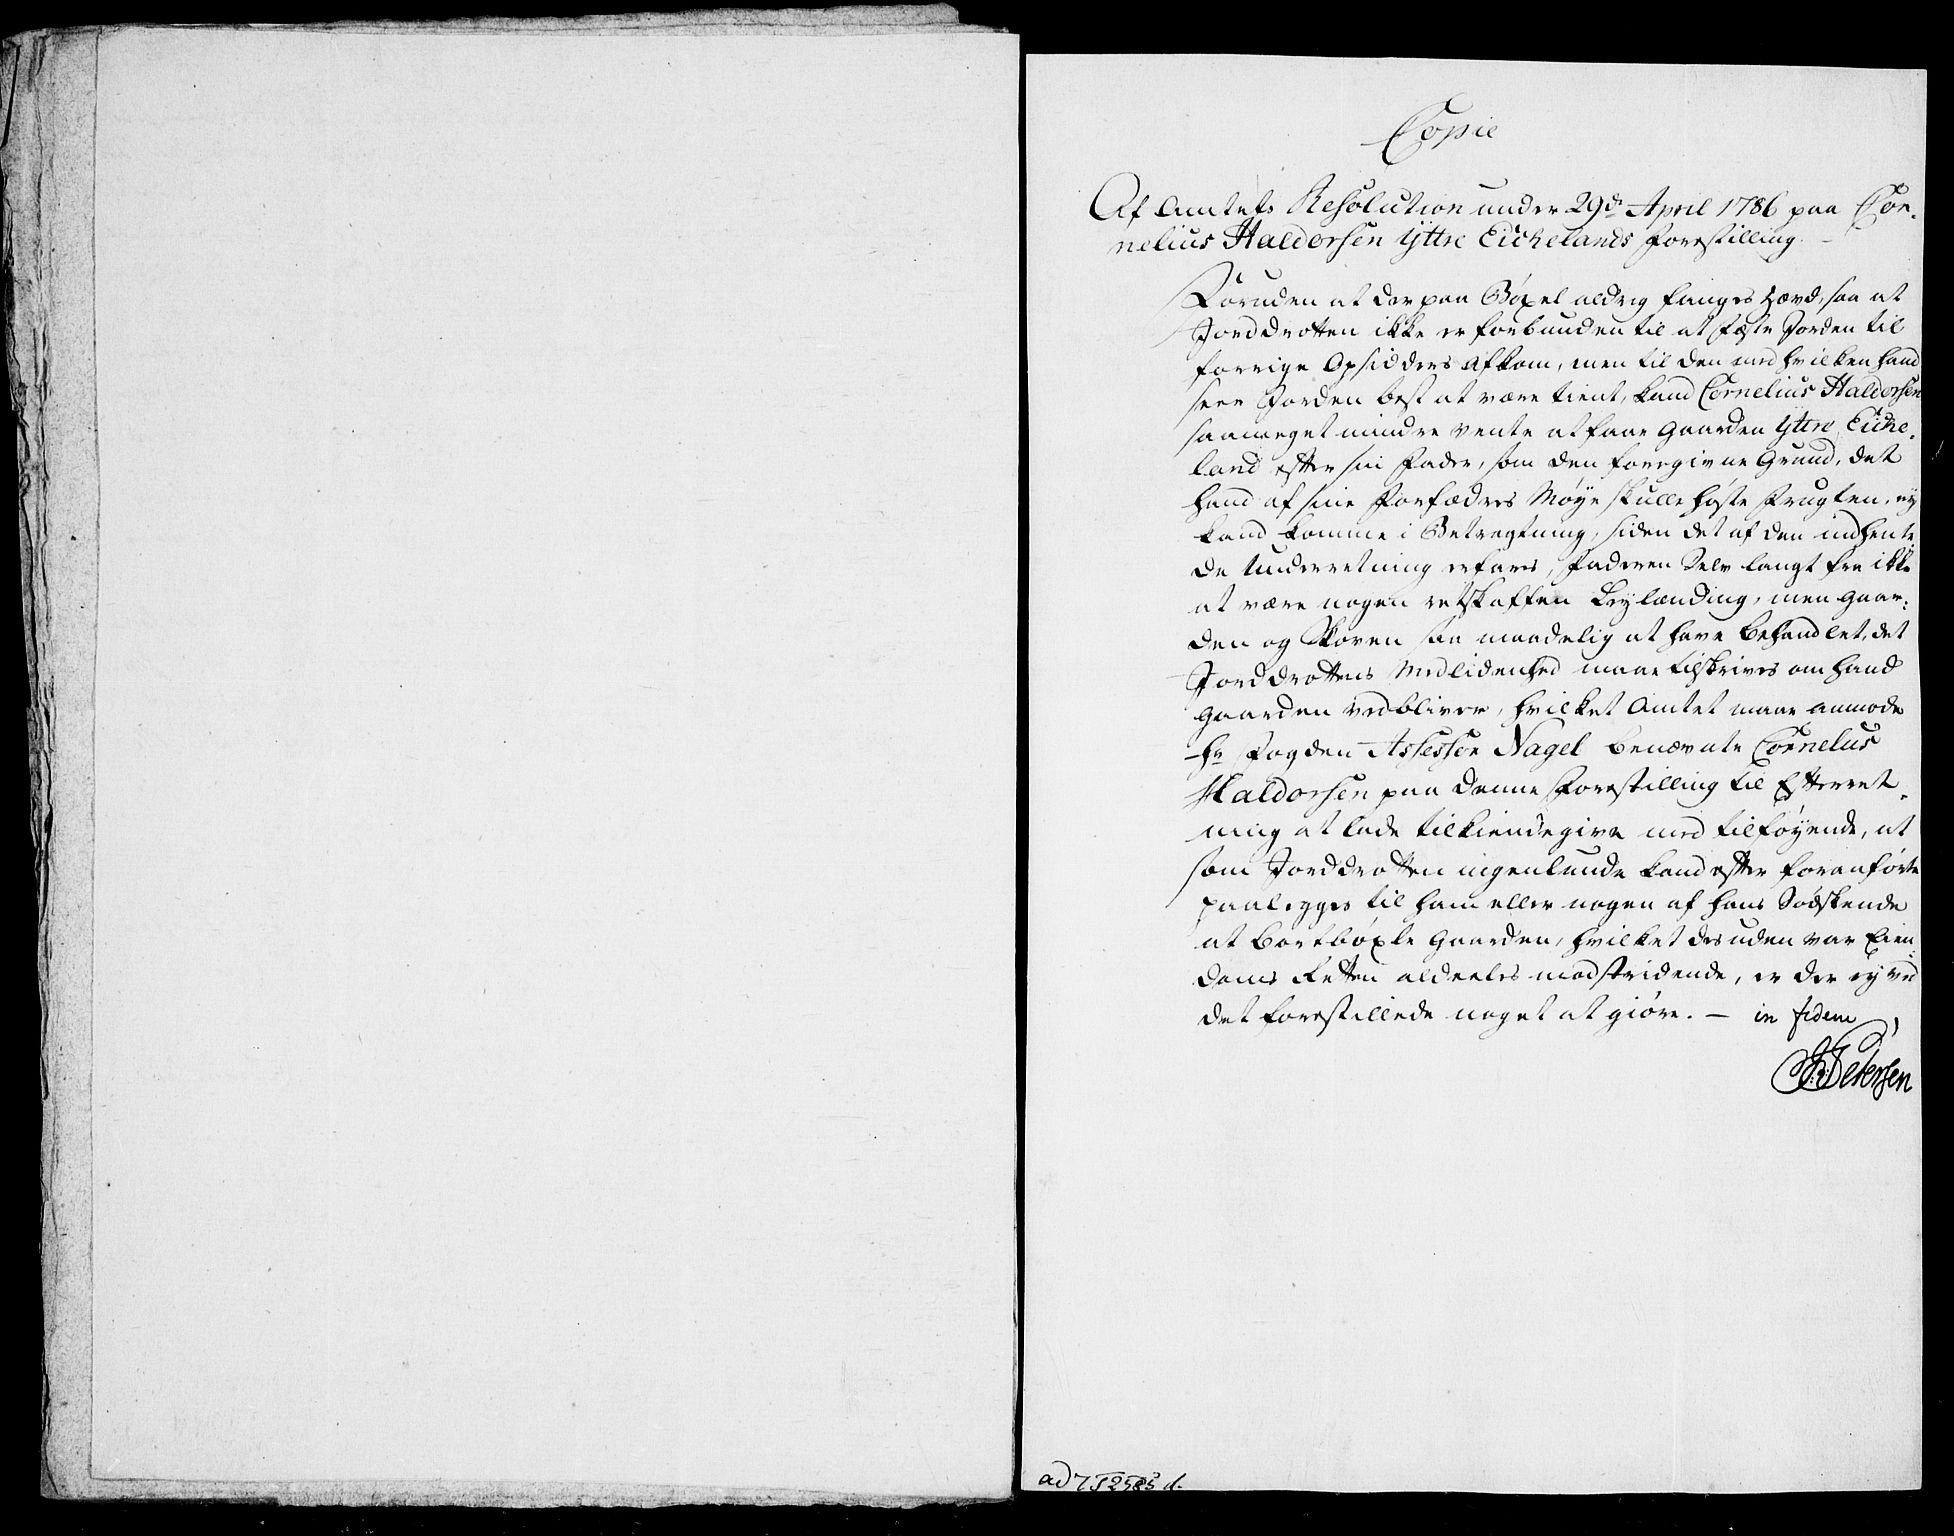 Copie
Af Amtets Resolution under 29d April 1786 paa Cor-
nelius Haldorsen Yttre Eichelands Forestilling. –
Foruden at der paa Böxel aldrig fanges Hævd, saa at
Jorddrotten ikke er forbunden til at fæste Jorden til
forrige Opsidders Afkom, men til den med hvilken hand
seer Jorden best at være tient, kand Cornelius Haldorsen
saameget mindre vente at faae Gaarden Yttre Eiche-
land efter sin Fader, som den foregivne Grund, det
hand af sine Forfædres Møye skulle høste Frugten, ey
kand komme i Betragtning, siden det af den indhente
de Underretning erfares, Faderen Selv langt fra ikke
at være nogen retskaffen Leylænding, men Gaar-
den og Skoven saa maadelig at have behandlet, det
Jorddrottens Medlidenhed maae tilskrives om hand
Gaarden vedbliver, hvilket Amtet maae anmode
Hr Fogden Assessor Nagel benævnte Cornelus
Haldorsen paa denne Forestilling til Efterret-
ning at lade tilkiendegive med tilføyende, at
som Jorddrotten ingenlunde kand efter foranførte
paalegges til ham eller nogen af hans Sødskende
at bortbøxle Gaarden, hvilket desuden var Eien-
doms Retten aldeeles modstridende, er der ey ved
det forestillede noget at giøre. – in fidem
Petersen